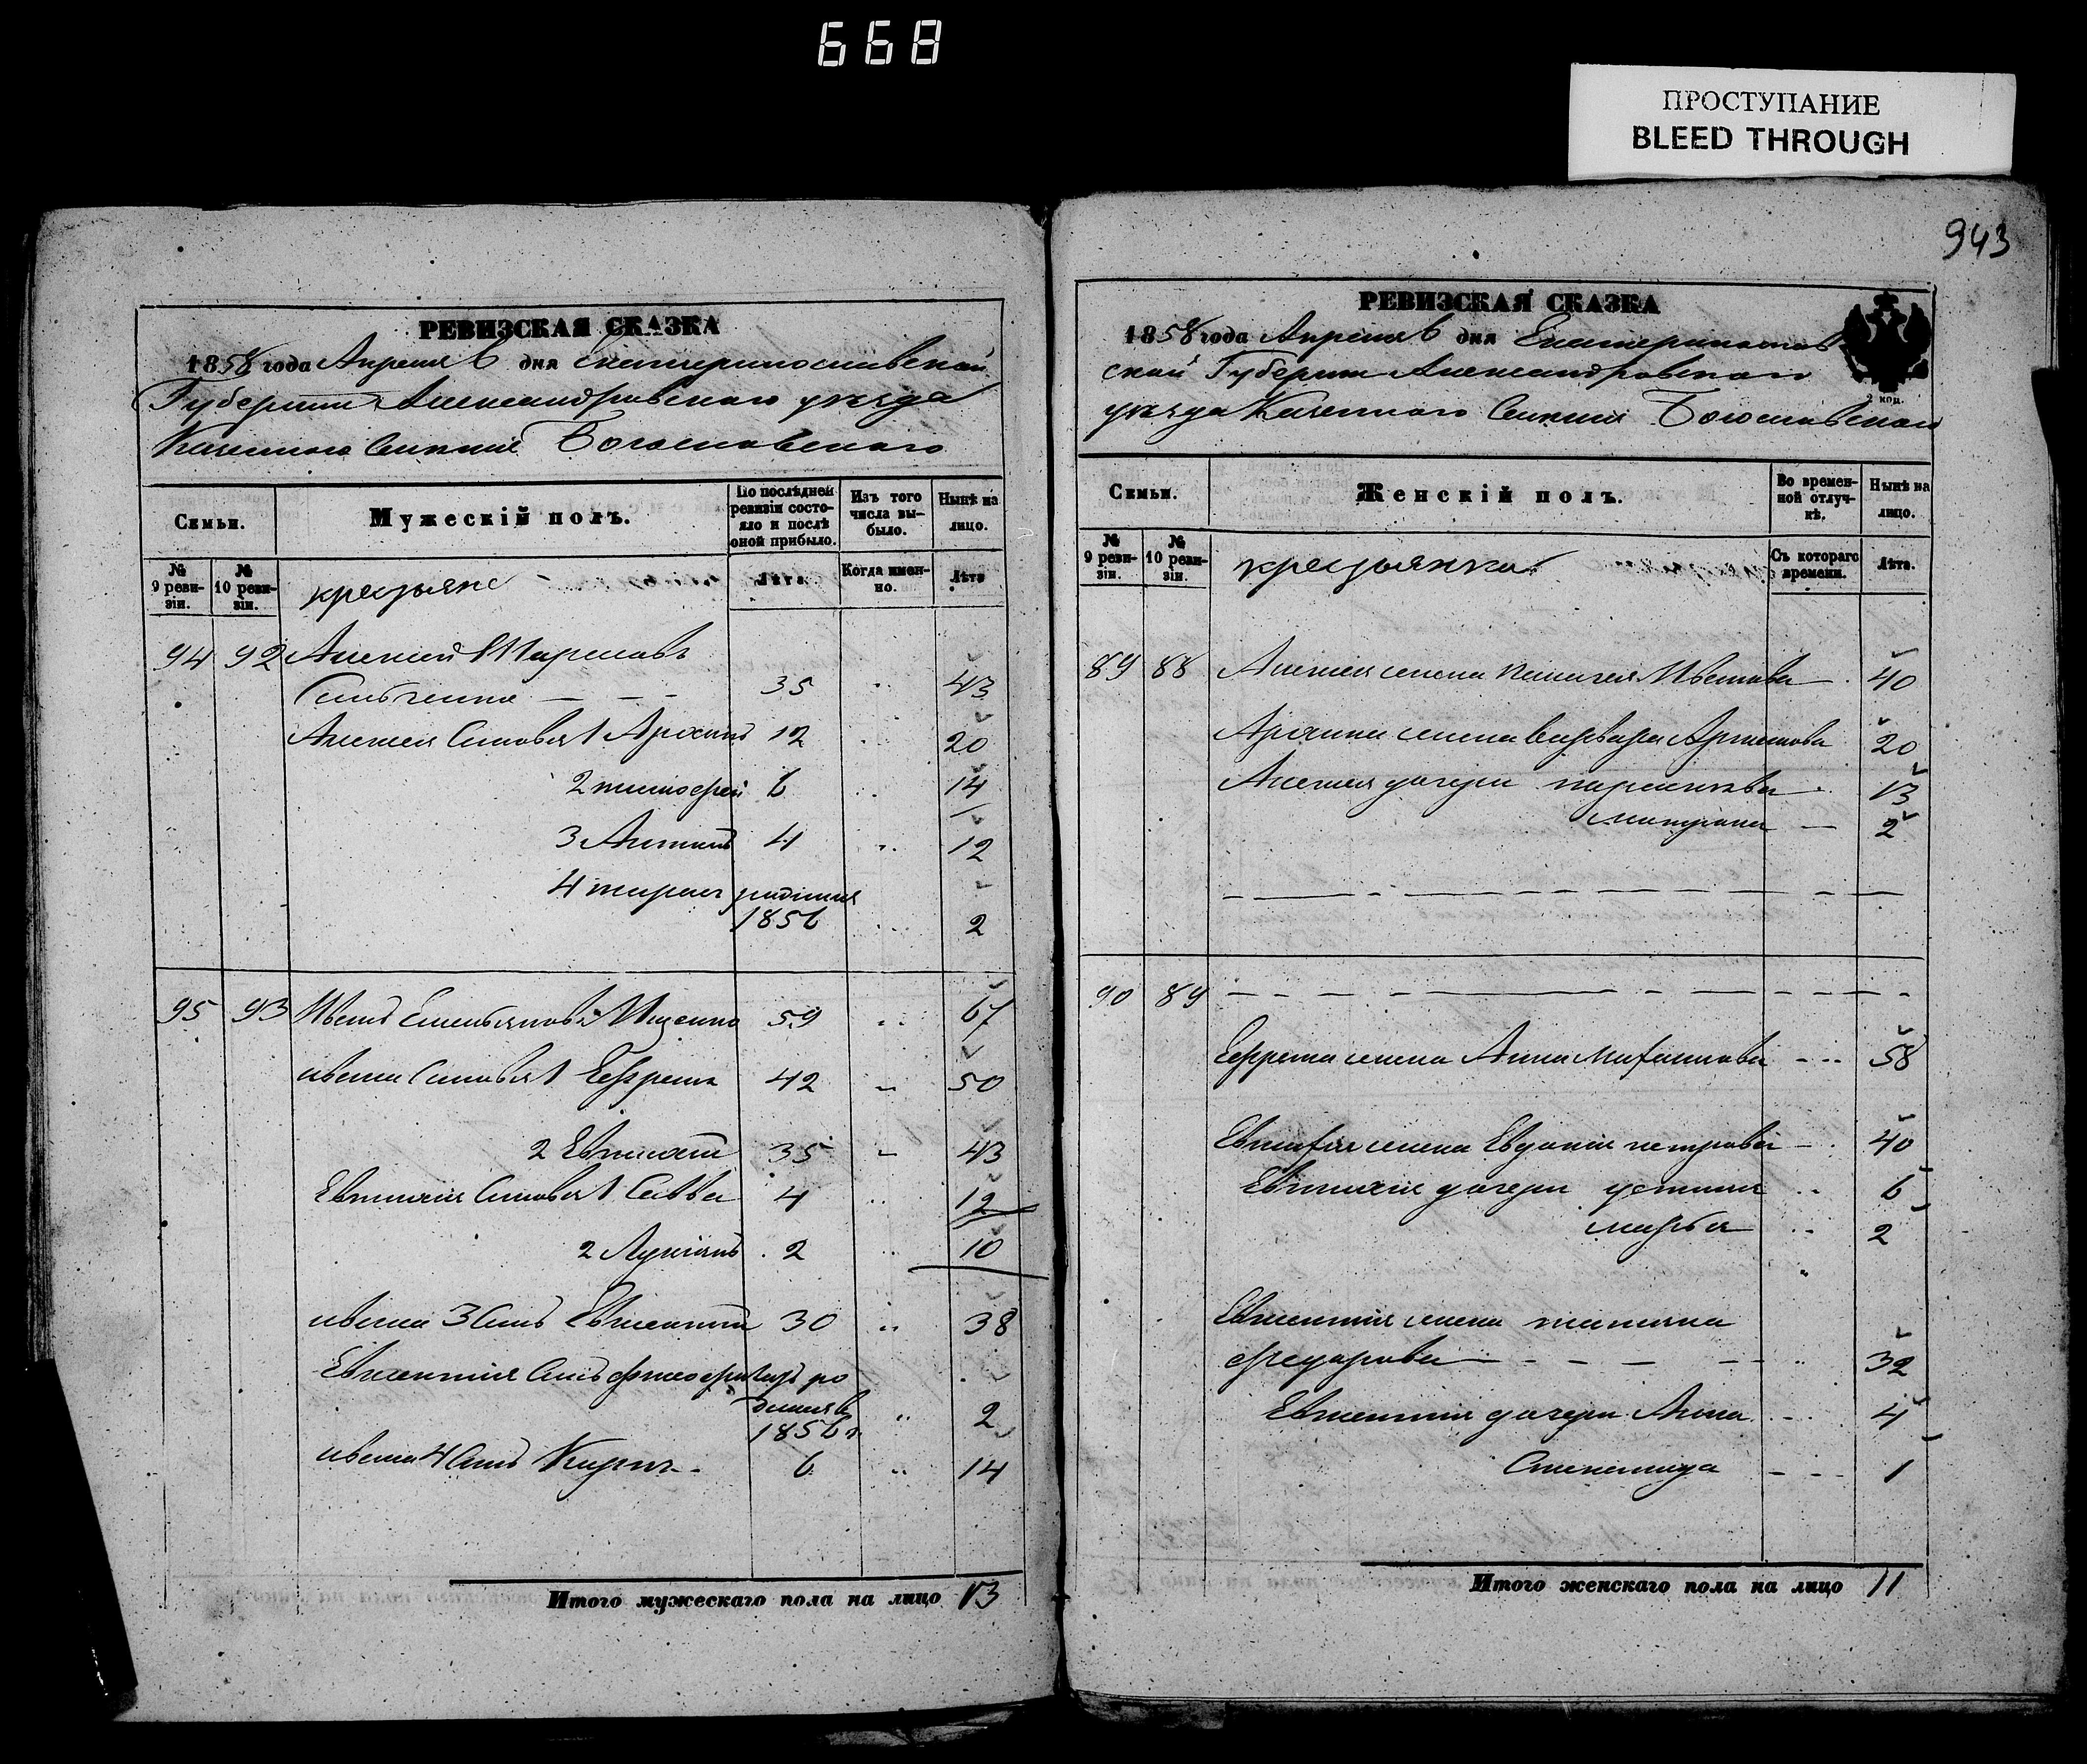 668
ПРОСТУПАНИЕ
BLEED THROUGH
943
РЕВИЗСКАЯ СКАЗКА
1858 года Апреля 6 дня Екатеринославской
Губернии Александровского уезда
Казенного Селения Богословского
Семьи.
Мужескій полъ.
По послѣдней ревизіи состояло и послѣ оной прибыло.
Изъ того числа выбыло.
Нынѣ на лицо.
№ 9 ревизіи.
№ 10 ревизіи.
крестьяне
Лѣта
Когда именно.
Лѣта
94 92 Алексей
35 43
Алексея Сыновья 1 12 20
2 тимофей 6 14
3 Антонъ 4 12
4 родился
1856 2
95 93 Иванъ Емельяновъ Ищенко 59 67
ивана Сыновья 1 Ефремъ 42 50
2 Евтихій 35 43
Евтихія Сыновья 1 Савва 4 12
2 Лукіянъ 2 10
ивана 3 Сынъ Евментій 30 38
Евментія Сынъ ро
дился в
1856 г. 2
ивана 4 Сынъ 6 14
Итого мужескаго пола на лицо 13
РЕВИЗСКАЯ СКАЗКА
1858 года Апреля 6 дня Екатеринослав
ской Губернии Александровского
уезда Казенного Селения Богословского
2 коп.
Семьи.
Женскій полъ.
Во временной отлучкѣ.
Нынѣ на лицо.
№ 9 ревизіи.
№ 10 ревизіи.
крестьянка
Съ котораго времени.
Лѣта.
89 88 Алексея жена Пелагея Иванова 40
жена варвара Артемова 20
Алексея дочери парасковья 13
матрона 2
90 89
Ефрема жена Анна 58
Евтихія жена Евдокия петрова 40
Евтихія дочери устинья 6
марья 2
Евментія жена татьяна
федорова 32
Евментія дочери Анна 4
Степанида 1
Итого женскаго пола на лицо 11